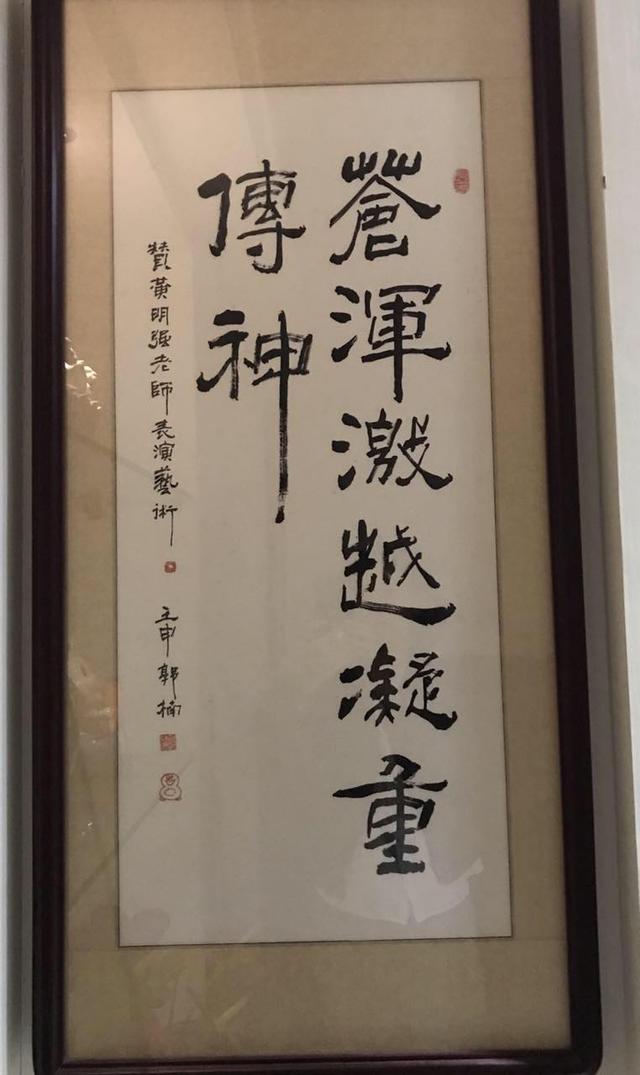 蒼渾激越凝重
傳神
贊黃明强老師表演藝術
壬申郭楠